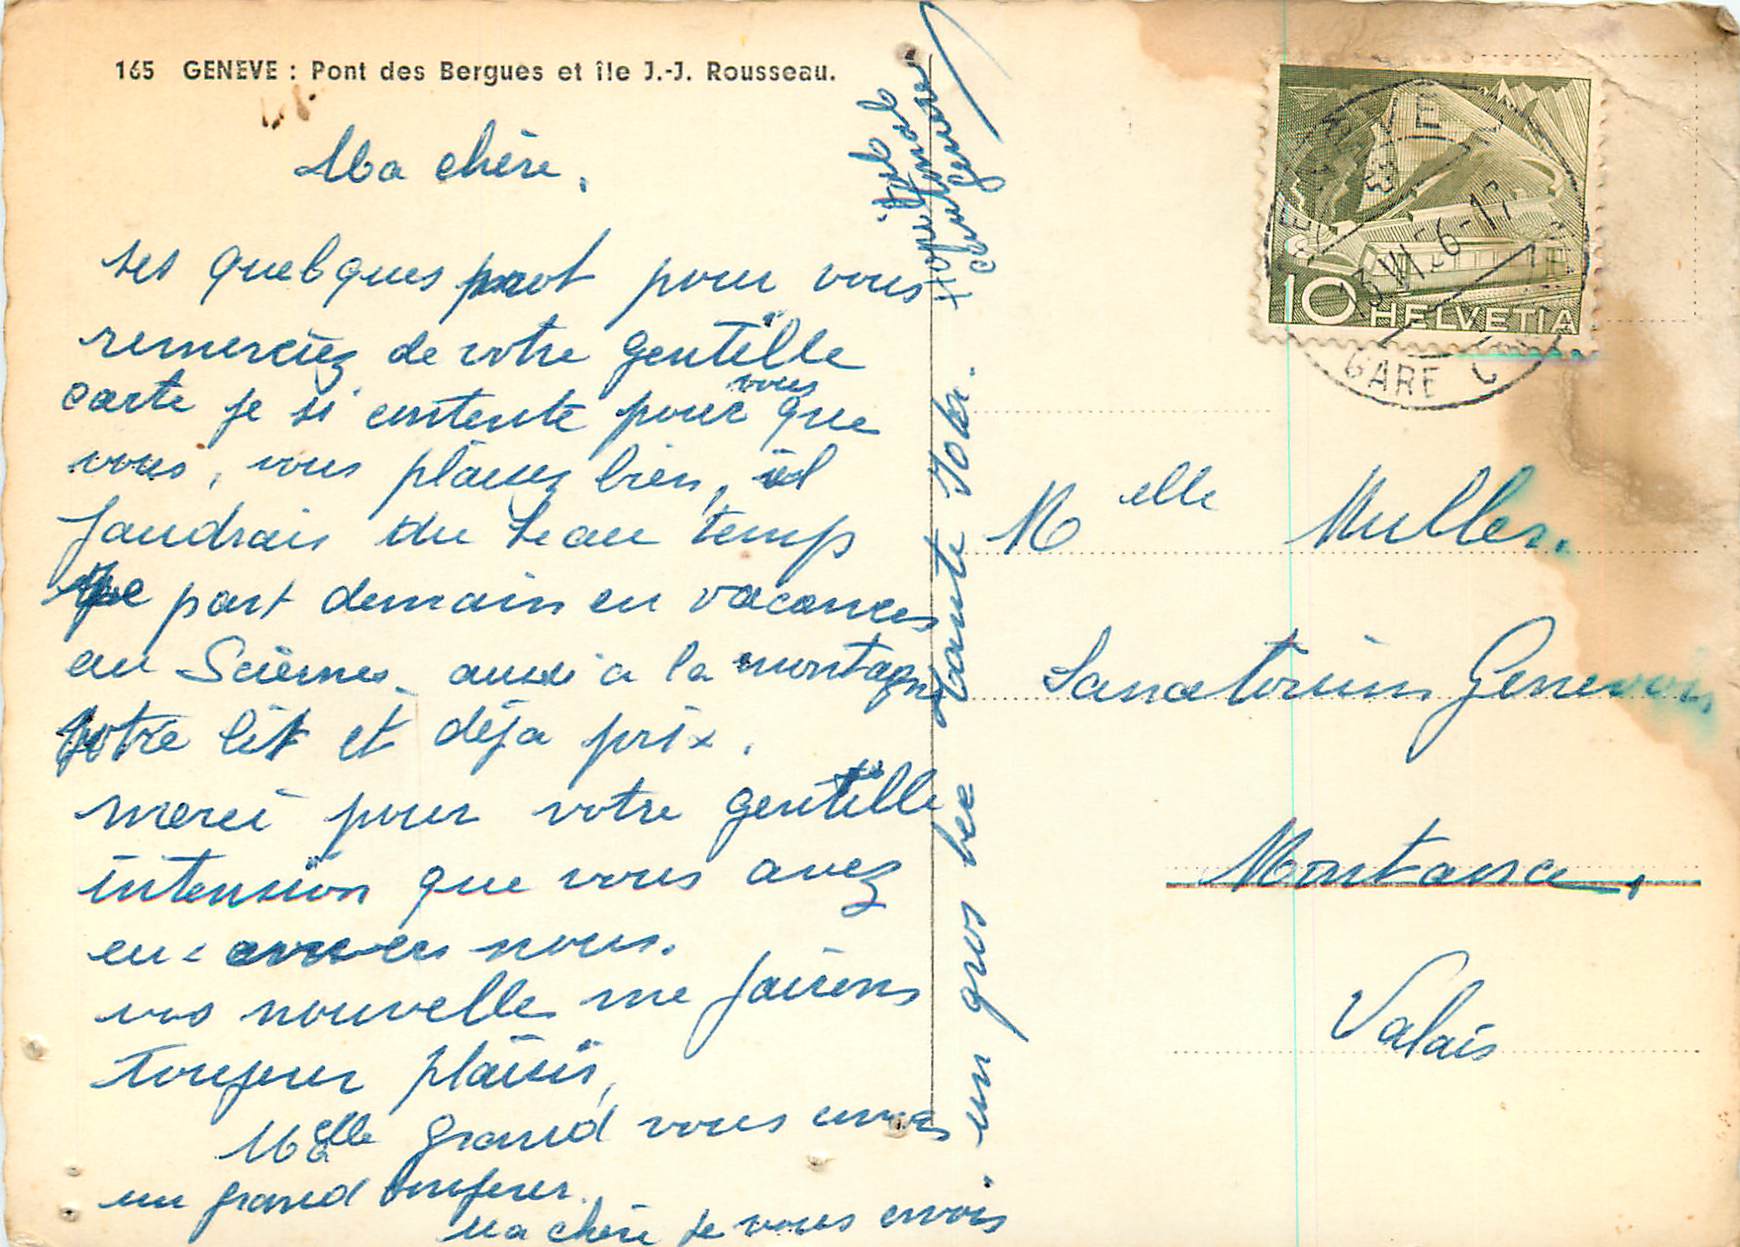 165 GENEVE : Pont des Bergues et île J.-J. Rousseau.
Ma chère,
ses quelques mot pour vous
remerciez de votre gentille
carte je si contente pour vous que
vous, vous plaisez bien, il
faudrais du beau temps
Je part demain en vacances
au Sciernes aussi a la montagne
Votre lit et déja prix.
merci pour votre gentille
intension que vous avez
eu envers nous.
vos nouvelle me fairens
toujour plaisir,
Melle grand vous envois
un grand bonjour.
Ma chère je vous envois
un gros bec tante Ida.
Hopital
cantonal
Genève
10 HELVETIA
GENEVE
13.VI.56-17
GARE C
Melle Muller.
Sanatorium Genevois
Montana,
Valais